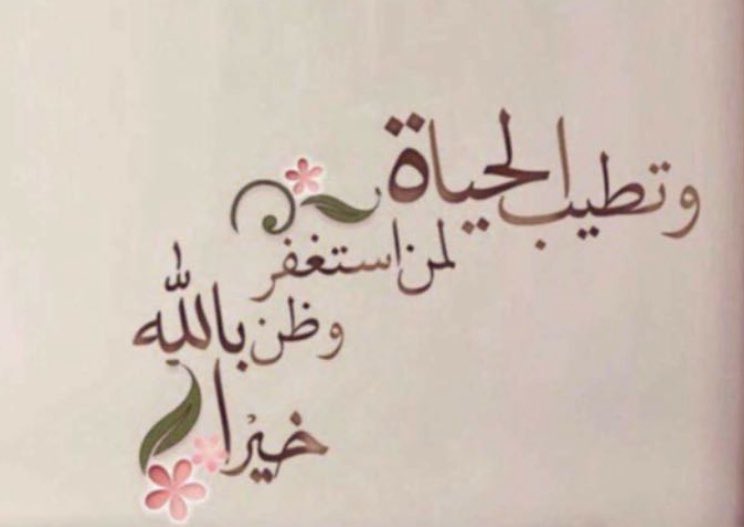 وتطيب الحياة
لمن استغفر
وظن بالله
خيرا